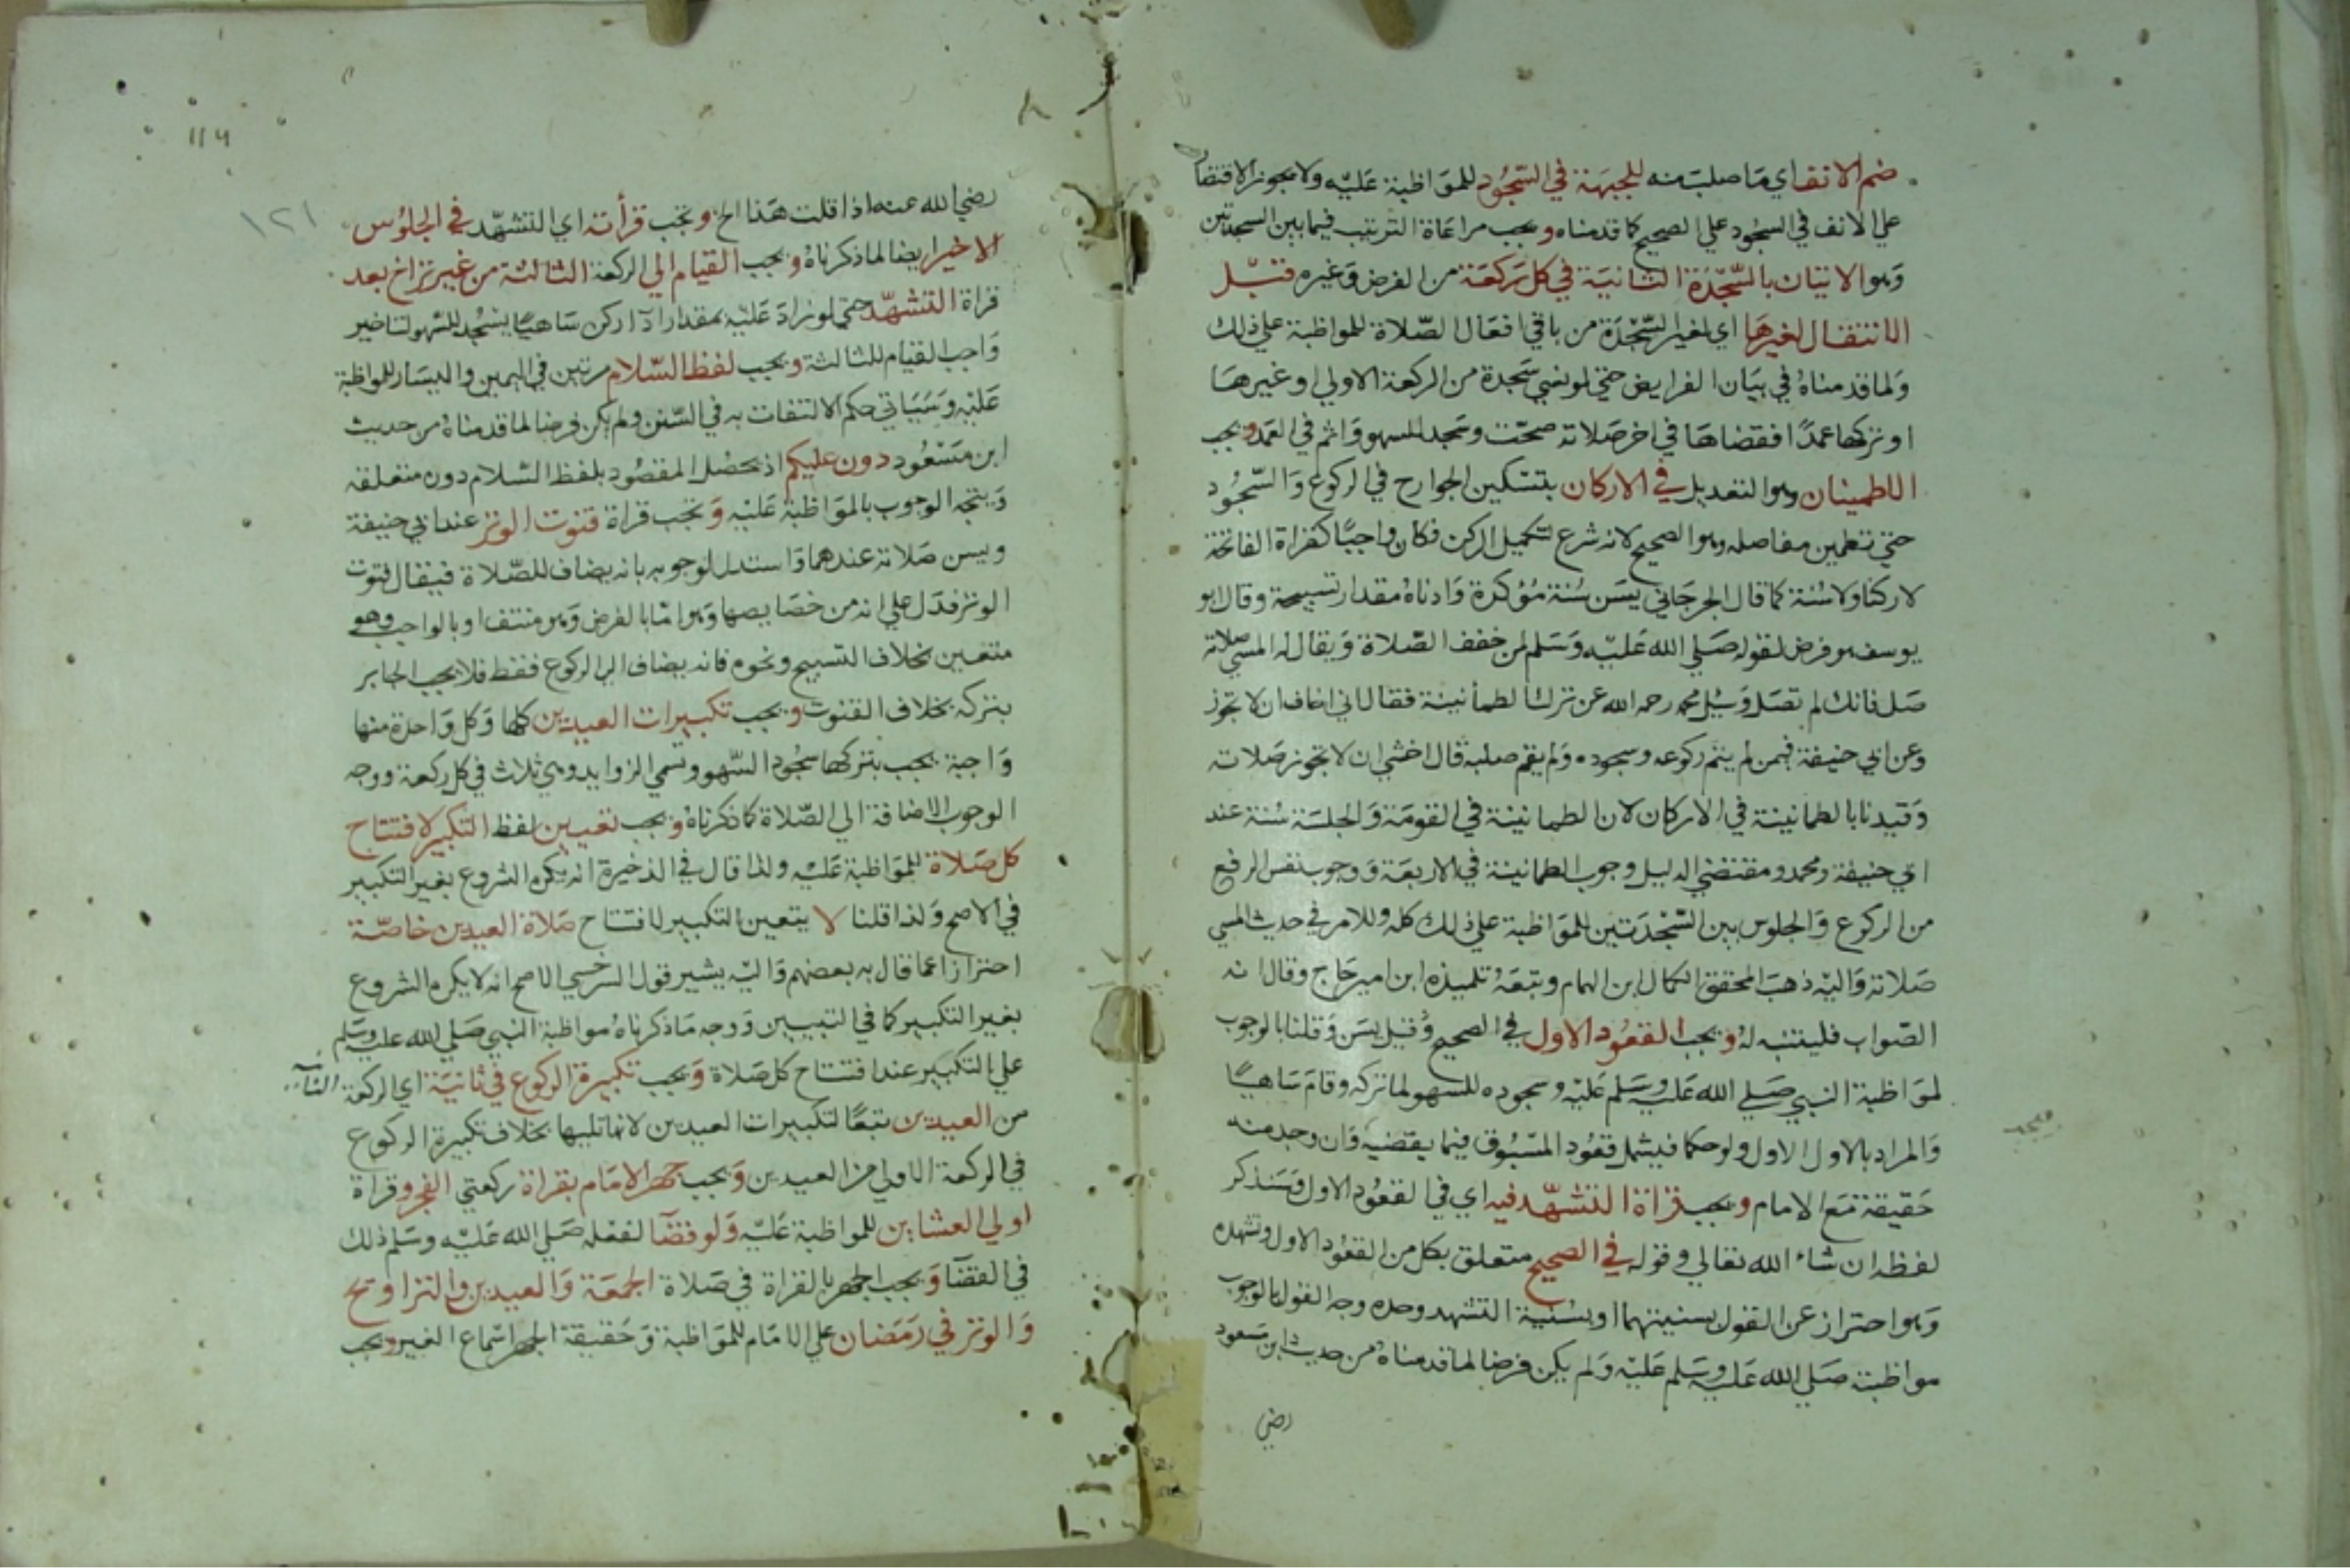 ضم الانف اي ما صلب منه للجبهة في السجود للمواظبة عليه ولا يجوز الاقتصار
علي الانف في السجود علي الصحيح كما قدمناه و يجب مراعاة الترتيب فيما بين السجدتين
وهو الاتيان بالسجدة الثانية في كل ركعة من الفرض وغيره قبل
الانتقال لغيرها اي لغير السجدة من باقي افعال الصلاة للمواظبة علي ذلك
ولما قدمناه في بيان الفرايض حتي لو نسي سجدة من الركعة الاولي او غيرها
او تركها عمدا فقضاها في اخر صلاته صحت وسجد للسهو واثم في العمد ويجب
الاطمينان وهو التعديل في الاركان بتسكين الجوارح في الركوع والسجود
حتي تطمين مفاصله وهو الصحيح لانه شرع لتكميل الركن فكان واجبا كقراة الفاتحة
لا ركنا ولا سنة كما قال الجرجاني يسن سنة مؤكدة وادناه مقدار تسبيحة وقال ابو
يوسف هو فرض لقوله صلي الله عليه وسلم لمن خفف الصلاة ويقال له المسي صلاته
صل فانك لم تصل وسيل محمد رحمه الله عن ترك الطمأنينة فقال اني اخاف ان لا تجوز
وعن ابي حنيفة فيمن لم يتم ركوعه وسجوده ولم يقم صلبه قال اخشي ان لا تجوز صلاته
وقيدنا بالطمانينة في الاركان لان الطمانينة في القومة والجلسة سنة عند
ابي حنيفة ومحمد ومقتضي الدليل وجوب الطمانينة في الاربعة ووجوب نفس الرفع
من الركوع والجلوس بين السجدتين للمواظبة علي ذلك كله وللامر في حديث المسي
صلاته واليه ذهب المحقق الكمال ابن الهمام وتبعه تلميذه ابن امير حاج وقال انه
الصواب فليتنبه له ويجب القعود الاول في الصحيح وقيل يسن وقلنا بالوجوب
لمواظبة النبي صلي الله عليه وسلم عليه وسجوده للسهو لما تركه وقام ساهيا
والمراد بالاول الاول ولو حكما فيشمل قعود المسبوق فيما يقضيه وان وجد منه
حقيقة مع الامام ويجب قراة التشهد فيه اي في القعود الاول وسنذكر
لفظه ان شاء الله تعالي وقوله في الصحيح متعلق بكل من القعود الاول وتشهده
وهو احتراز عن القول بسنيتهما او بسنية التشهد وحده وجه القول بالوجوب
مواظبته صلي الله عليه وسلم عليه ولم يكن فرضا لما قدمناه من حديث ابن مسعود
رضي
١٢١
رضي الله عنه اذا قلت هذا الخ وتجب قرأته اي التشهد في الجلوس
الاخير ايضا لما ذكرناه ويجب القيام الي الركعة الثالثة من غير تراخ بعد
قراة التشهد حتي لو زاد عليه بمقدار ادآ ركن ساهيا يسجد للسهو لتاخير
واجب القيام للثالثة ويجب لفظ السلام مرتين في اليمين واليسار للمواظبة
عليه وسياتي حكم الالتفات به في السنن ولم يكن فرضا لما قدمناه من حديث
ابن مسعود دون عليكم اذ يحصل المقصود بلفظ السلام دون متعلقه
ويتجه الوجوب بالمواظبة عليه وتجب قراة قنوت الوتر عند ابي حنيفة
ويسن صلاته عندهما واستدل لوجوبه بانه يضاف للصلاة فيقال قنوت
الوتر فدل علي انه من خصايصها وهو اما بالفرض وهو منتف او بالواجب وهو
متعين بخلاف التسبيح ونحوه فانه يضاف الي الركوع فقط فلا يجب الجابر
بتركه بخلاف القنوت ويجب تكبيرات العيدين كلها وكل واحدة منها
واجبة يجب بتركها سجود السهو وتسمي الزوايد وهي ثلاث في كل ركعة ووجه
الوجوب الاضافة الي الصلاة كما ذكرناه ويجب تعيين لفظ التكبير لافتتاح
كل صلاة للمواظبة عليه ولذا قال في الذخيرة انه يكره الشروع بغير التكبير
في الاصح ولذا قلنا لا يتعين التكبير لافتتاح صلاة العيدين خاصة
احترازا عما قال به بعضهم واليه يشير قول السرخسي الاصح انه لا يكره الشروع
بغير التكبير كما في التبيين ووجه ما ذكرناه مواظبة النبي صلي الله عليه وسلم
علي التكبير عند افتتاح كل صلاة ويجب تكبيرة الركوع في ثانية اي الركعة الثانية
من العيدين تبعا لتكبيرات العيدين لانها تليها بخلاف تكبيرة الركوع
في الركعة الاولي من العيدين ويجب جهر الامام بقراة ركعتي الفجر وقراة
اولي العشاين للمواظبة عليه ولو قضآ لفعله صلي الله عليه وسلم ذلك
في القضآ ويجب الجهر بالقراة في صلاة الجمعة والعيدين والتراويح
والوتر في رمضان علي الامام للمواظبة وحقيقة الجهر اسماع الغير ويجب